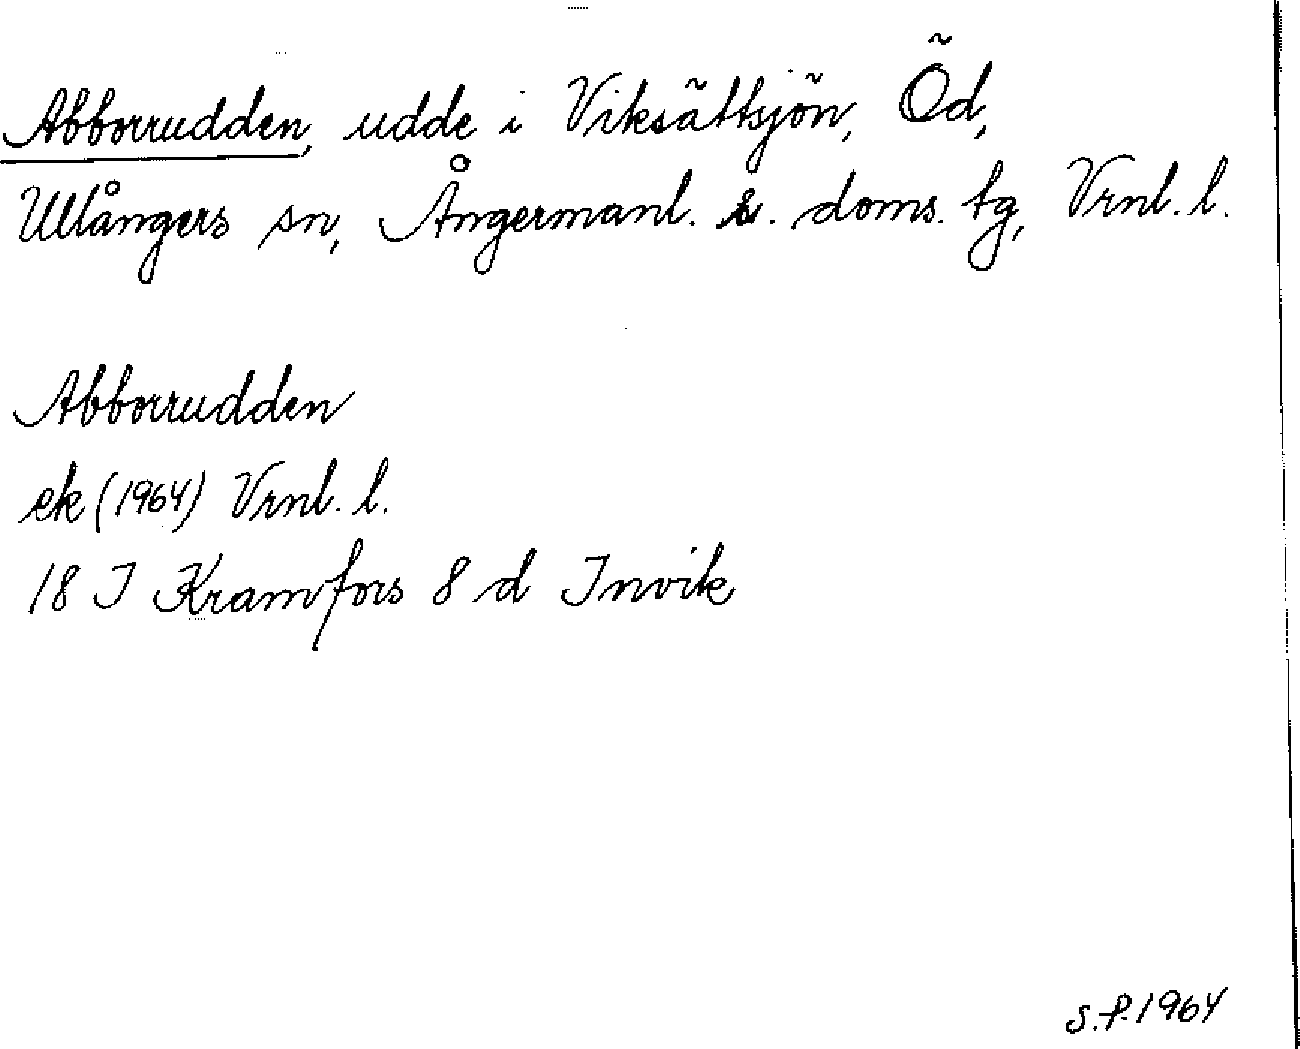 Abborrudden, udde i Viksättsjön, Öd,
Ullångers sn, Ångermanl. s. doms. tg, Vrnl. l.
Abborrudden
ek (1964) Vrnl. l.
18 I Kramfors 8 d Invik
S.P. 1964